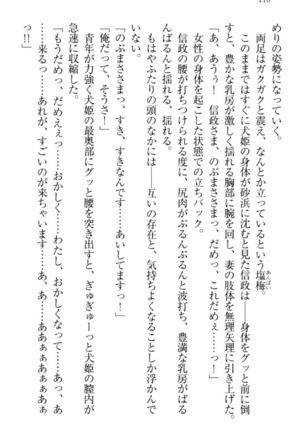 めりの姿勢になっていく。
両足はガクガクと震え、なんとか立っているという塩梅。
このままではすぐに犬姫の身体が砂浜に沈むと見た信政は――身体をグッと前に倒
すと、豊かな乳房が激しく揺れる胸部に腕を回し、妻の肢体を無理矢理に引き上げた。
「あ、あうぅ！　信政さま、のぶまささまっ、だめっ、これだめぇ……っ！」
女性の身体を起こした状態での立ちバック。
信政の腰が打ちつけられる度に、尻肉がぶるんぶるんと波打ち、豊満な乳房がばる
んばるんと揺れる、揺れる。
もはやふたりの頭のなかには――互いの存在と、気持ちよくなることしか浮かんで
いない。
「のぶまささまっ、すき、すきなんですっ……あいしてますっ！」
「俺だって、っ！」
青年が力強く犬姫の最奥部にグッと腰を突き出すと、ぎゅぎゅーっと犬姫の膣内が
急速に収縮した。
「もうだめっ、だめぇぇっ……おかしくっ……わたし、おかしくなって……あっ、あ
……来るっ……あれがっ、すごいのが来ちゃいます……あ、あ、ああぁぁああぁぁぁ